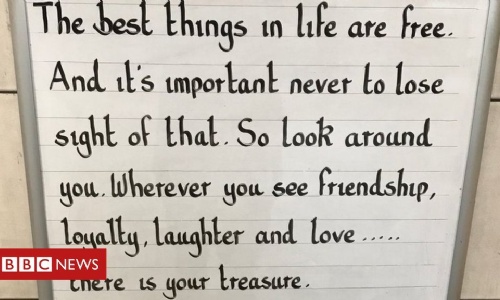 The best things in life are free.
And it's important never to lose
sight of that. So look around
you. Wherever you see friendship,
loyalty, laughter and love .....
there is your treasure.
BBC NEWS